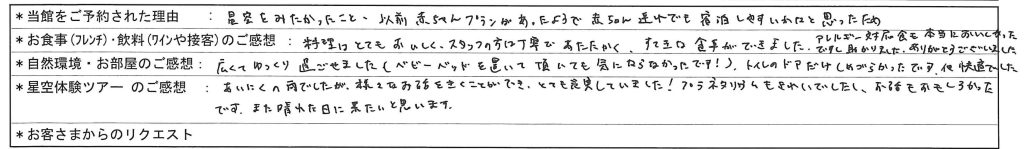 *当館をご予約された理由 : 星空をみたかったこと、以前赤ちゃんプランがあったようで赤ちゃん連れでも宿泊しやすいかなと思ったため
*お食事(フレンチ)・飲料(ワインや接客)のご感想 : 料理はとてもおいしく、スタッフの方は丁寧であたたかく、すてきな食事ができました。アレルギー対応食も本当においしかった
ですし助かりました。ありがとうございました
*自然環境・お部屋のご感想 : 広くてゆっくり過ごせました(ベビーベッドを置いて頂いても気にならなかったです!)。トイレのドアだけしめづらかったです、他快適でした
*星空体験ツアー のご感想 : あいにくの雨でしたが、様々なお話をきくことができ、とても充実していました!プラネタリウムもきれいでしたし、お話もおもしろかった
です。また晴れた日に来たいと思います。
*お客さまからのリクエスト